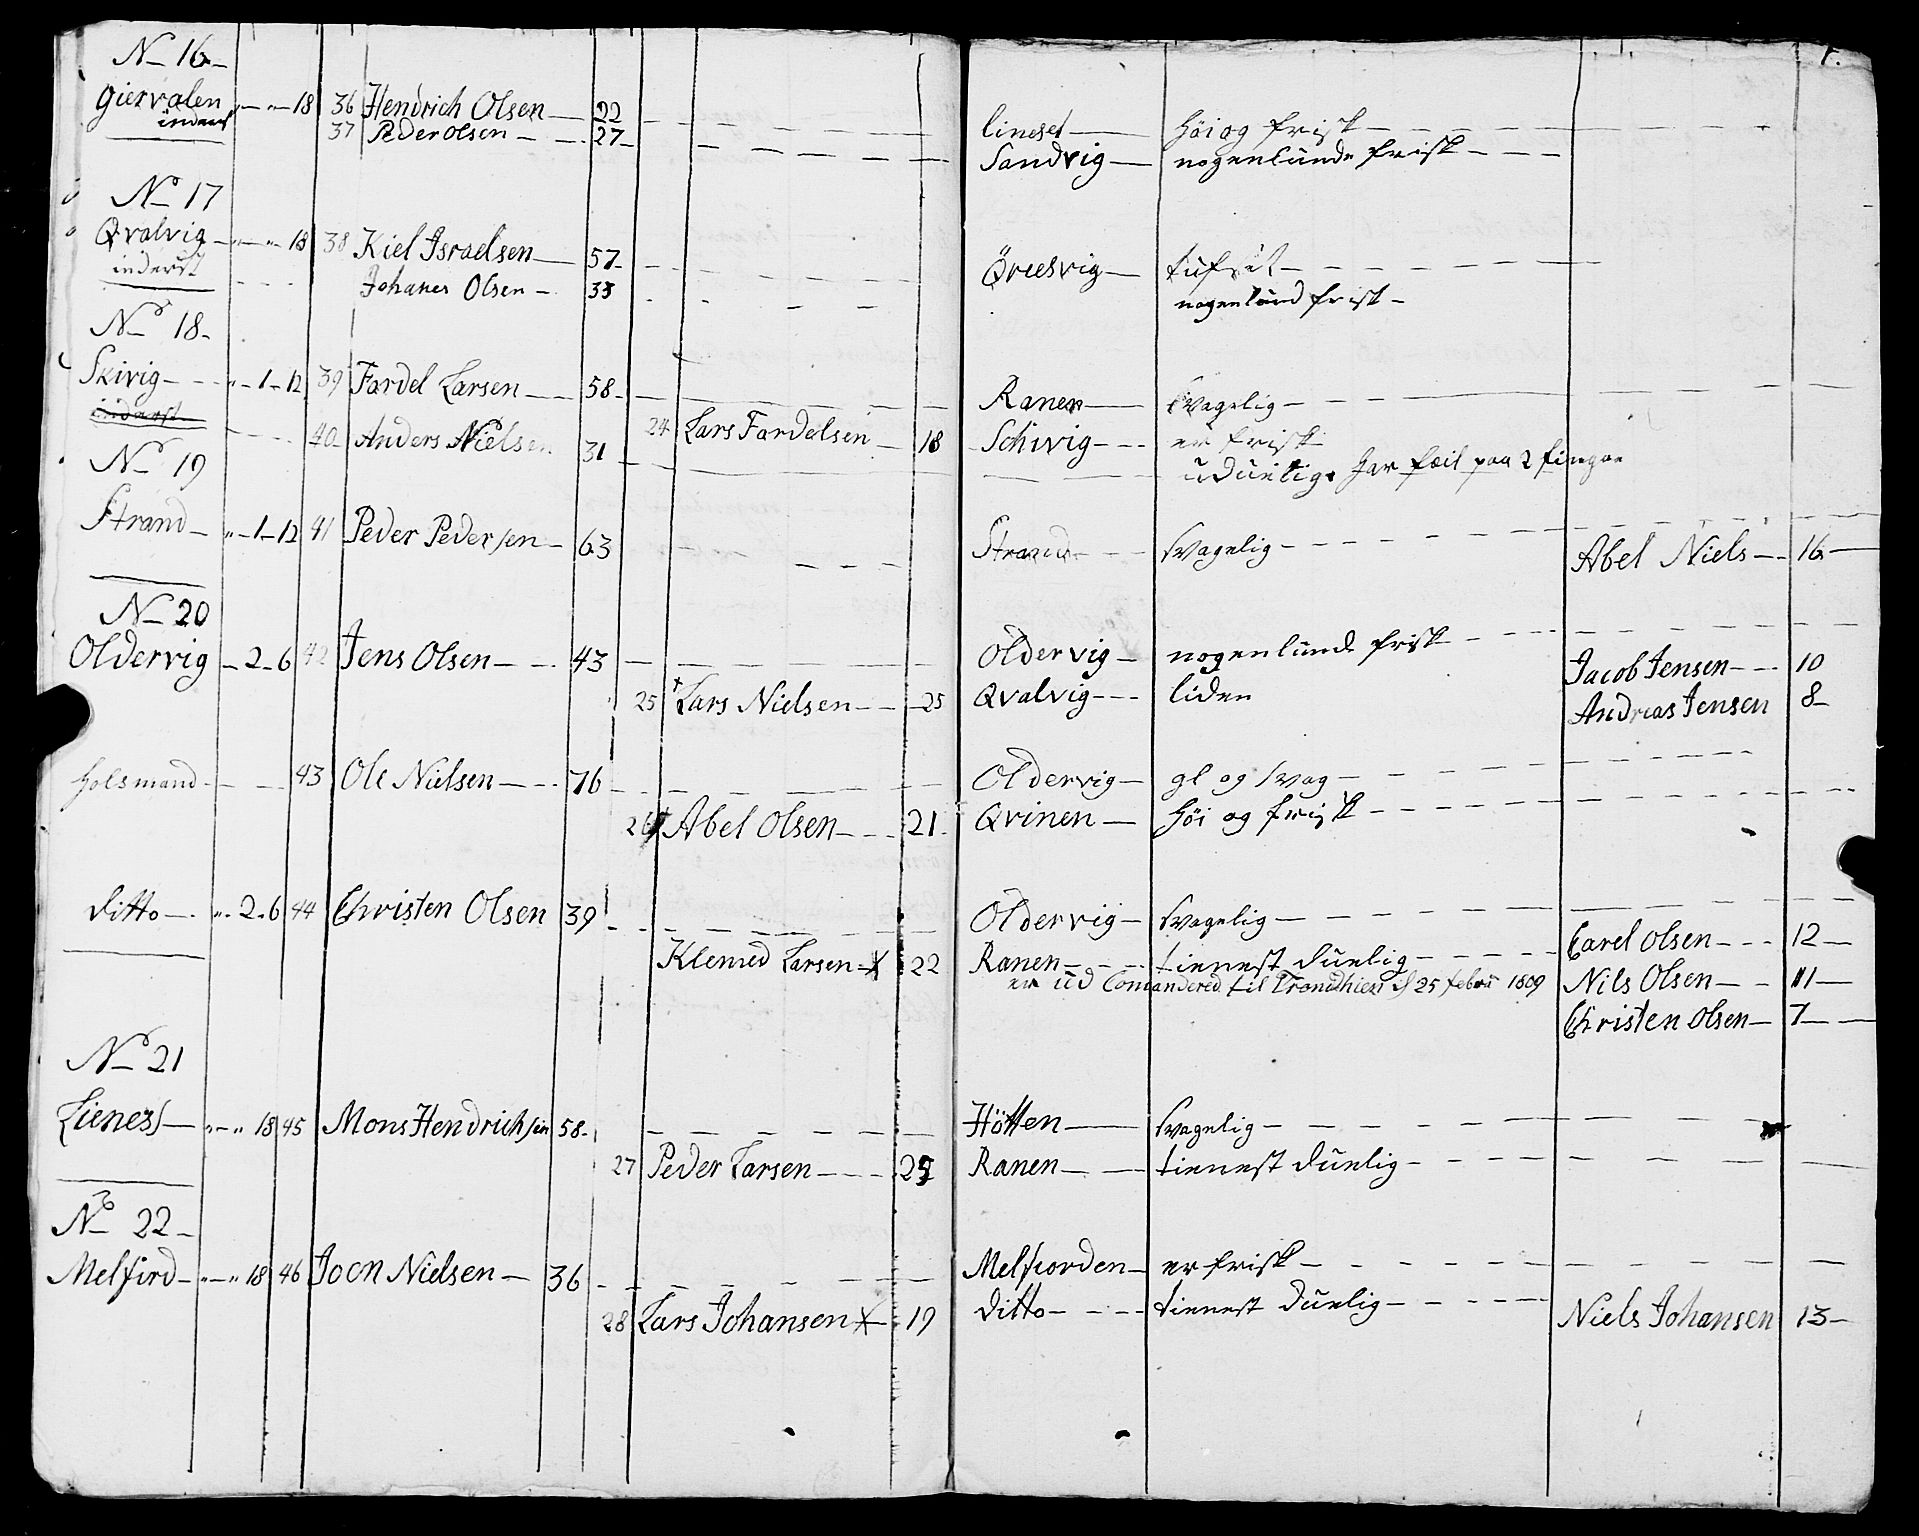 7.
No 16
Giervalen " — " — 18 36 Hendrich Olsen — 22 lineset — höi og frisk
inderst 37 Peder olsen — 27 Sandvig — nogenlunde frisk
No 17
Qvalvig — " — " — 18 38 Kiel Israelsen — 57 Öresvig
inderst Johanes Olsen — 33 nogenlund frisk
No 18
Skivig — " — 1 — 12 39 Fardel Larsen — 58 Ranen — svagelig
inderst 40 Anders Nielsen 31 24 Lars Fardelsen — 18 Schivig — er frisk
uduelig har feil paa 2 fingre
No 19
Strand — " — 1 — 12 41 Peder Pedersen — 63 Strand — svagelig Abel Niels — 16
No 20
Oldervig — 2 — 6 42 Jens Olsen — 43 Oldervig — nogenlunde frisk Jacob Jensen — 10
25 Lars Nielsen — 25 Qvalvig — liden Andreas Jensen 8
holsmand — 43 Ole Nielsen — 76 Oldervig — gl og svag
26 Abel Olsen — 21 Qvinen — höi og frisk
ditto — " — 2 — 6 44 Christen Olsen 39 Oldervig — svagelig Carel Olsen — 12
Klemed Larsen — X 22 Ranen — tienest duelig Nils Olsen — 11
er ud Comandered til Trondhiem d 25 febru 1809
Christen Olsen — 7
No 21
Lienes — " — " 18 45 Mons Hendrichsen 58 Hötten — svagelig
27 Peder Larsen — 25 Ranen — tienest duelig
No 22
Melfird — " — " 18 46 Joen Nielsen — 36 Melfiorden — er frisk
28 Lars Johansen X — 19 ditto — tienest duelig Niels Johansen 13